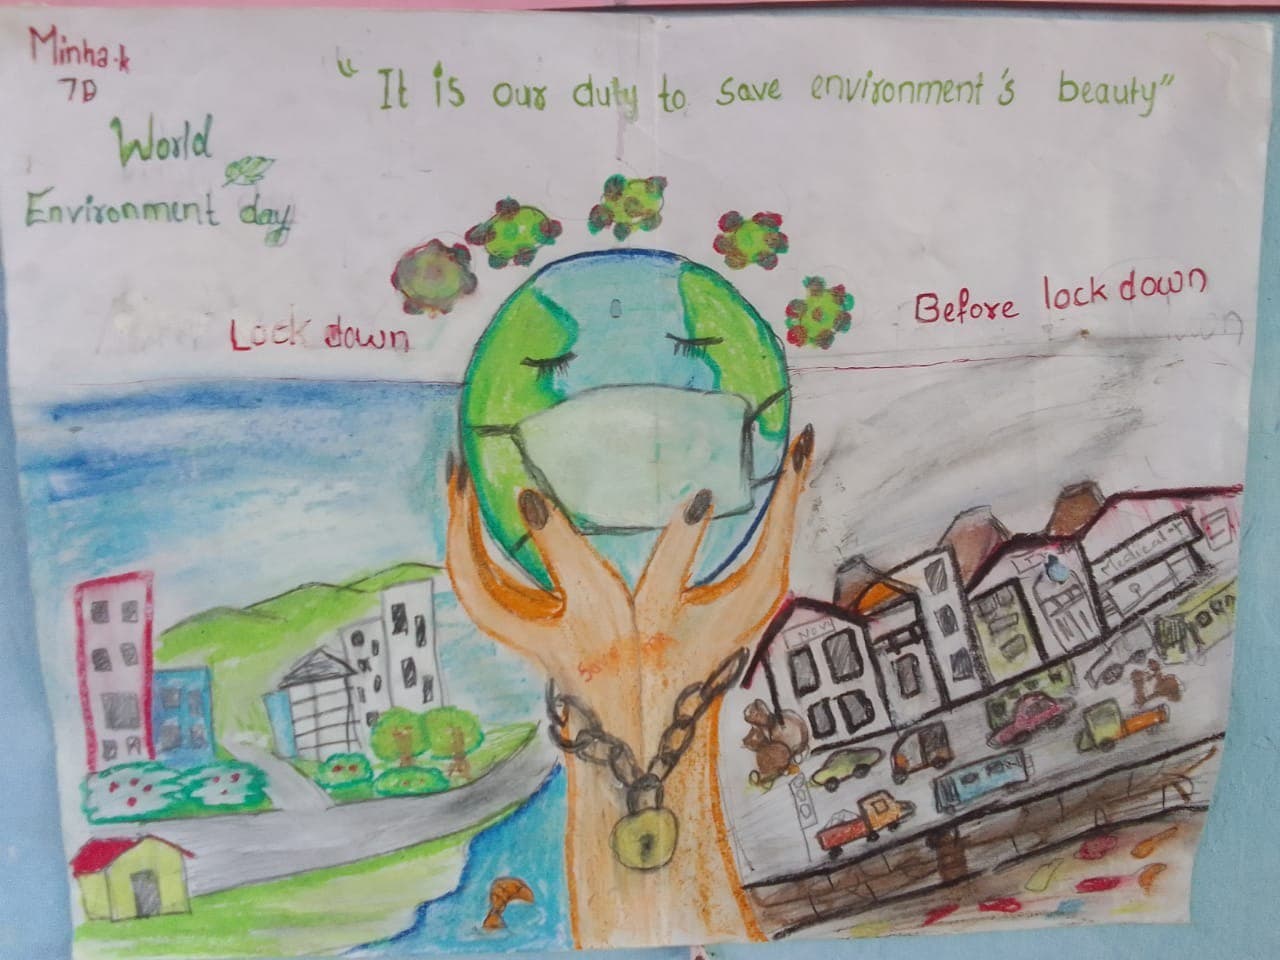 Minha.k
7D
"It is our duty to save environment's beauty"
World
Environment day
Lock down
Before lock down
Medical